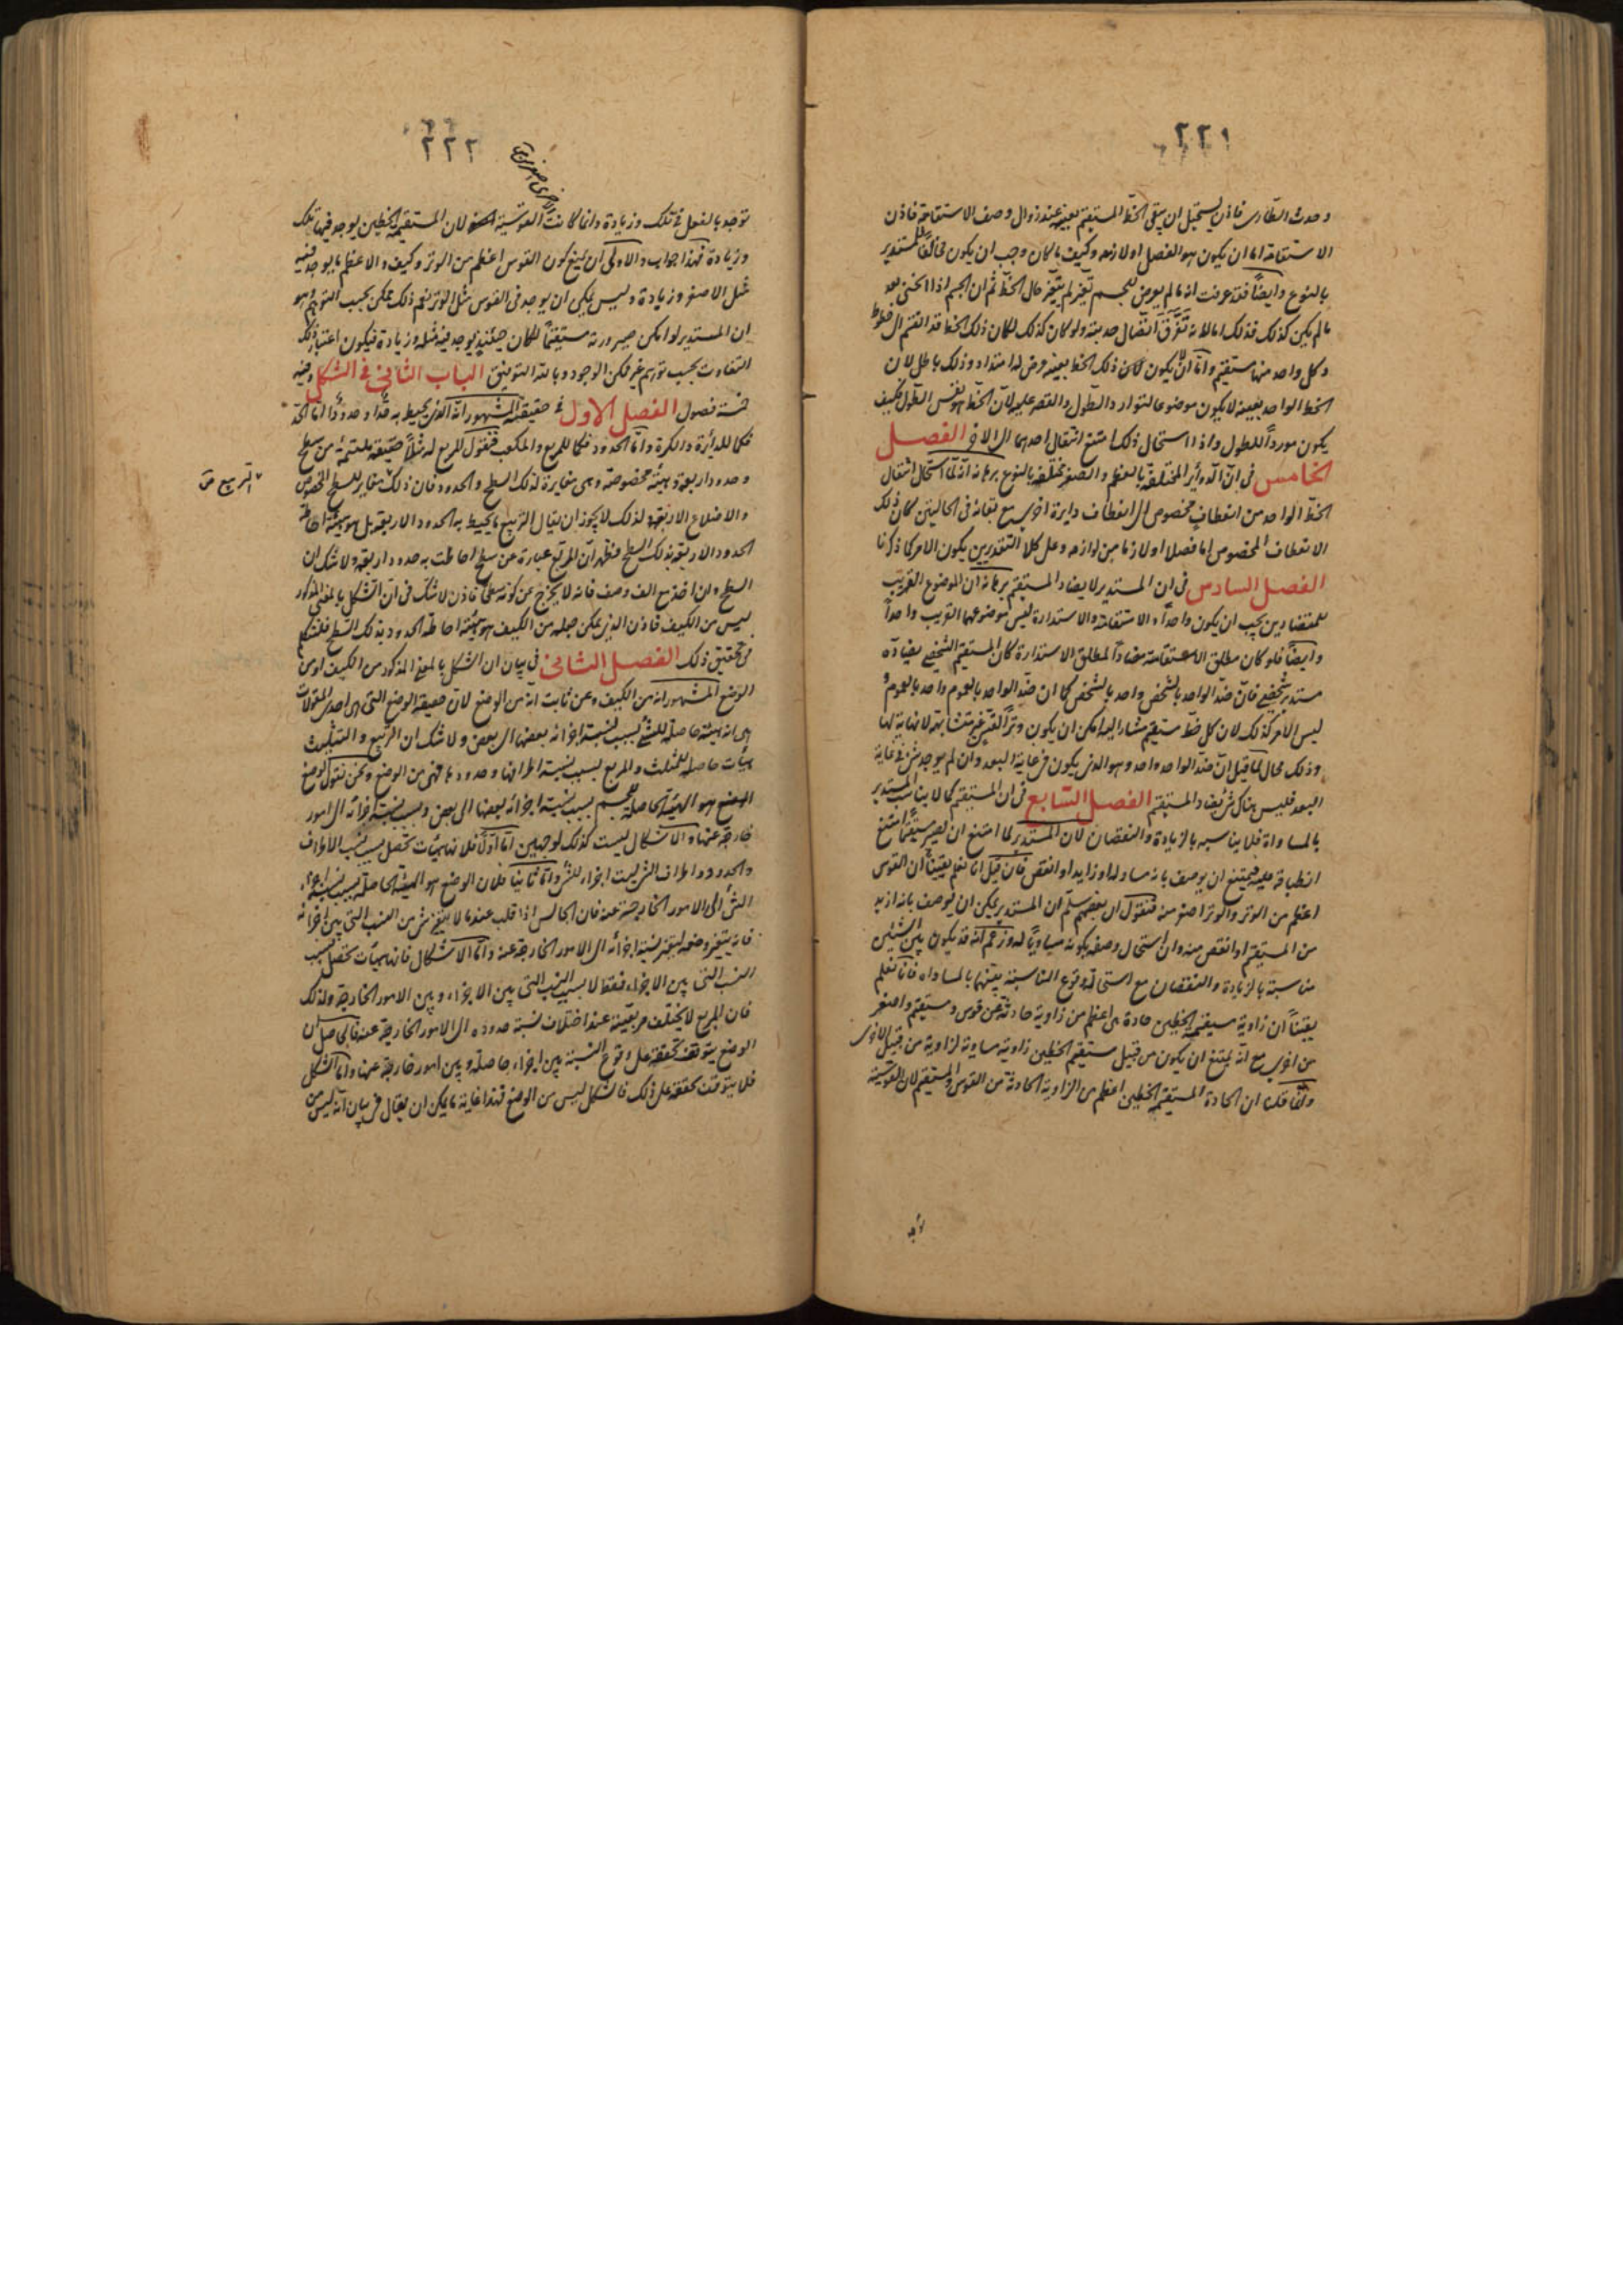 ٢٢١
وحدث الطارى فاذن يستحيل ان يبقى الخط المستقيم بعينه عند زوال وصف الاستقامة فاذن
الاستقامة اما ان يكون هو الفصل او لازمه وكيف ما كان وجب ان يكون مخالفا للمستدير
بالنوع وايضا فقد عرفت انه ما لم يعرض للجسم تغير لم يتغير حال الخط ثم ان الجسم اذا انحنى بعد
ما لم يكن كذلك فذلك اما لانه تفرق اتصال حدبته ولو كان كذلك لكان ذلك الخط قد انقسم الى خطوط
وكل واحد منها مستقيم واما ان يكون لان ذلك الخط بعينه عرض له امتداد وذلك باطل لان
الخط الواحد بعينه لا يكون موضوعا لتوارد الطول والقصر عليه لان الخط هو نفس الطول فكيف
يكون موردا للطول واذا استحال ذلك امتنع انتقال احدهما الى الاخر الفصل
الخامس فى ان الدوائر المختلفة بالعظم والصغر مختلفة بالنوع برهانه انه لما استحال انتقال
الخط الواحد من انعطاف مخصوص الى انعطاف دايرة اخرى مع بقائه فى الحالتين كان ذلك
الانعطاف المخصوص اما فصلا او لازما من لوازمه وعلى كلا التقديرين يكون الامر كما ذكرنا
الفصل السادس فى ان المستدير لا يضاد المستقيم برهانه ان الموضوع القريب
للمتضادين يجب ان يكون واحدا والاستقامة والاستدارة ليس موضوعهما القريب واحدا
وايضا فلو كان مطلق الاستقامة مضادا لمطلق الاستدارة كان المستقيم الشخصى يضاده
مستدير شخصى فان ضد الواحد بالشخص واحد بالشخص كما ان ضد الواحد بالعموم واحد بالعموم و
ليس الامر كذلك لان كل خط مستقيم مشار اليه امكن ان يكون وترا لقسى غير متشابهة لا نهاية لها
وذلك محال لما قيل ان ضد الواحد واحد وهو الذى يكون فى غاية البعد وان لم يوجد شئ فى غاية
البعد فليس هناك شئ يضاد المستقيم الفصل السابع فى ان المستقيم كما لا يناسب المستدير
بالمساواة فلا يناسبه بالزيادة والنقصان لان المستدير لما امتنع ان يصير مستقيما امتنع
انطباقه عليه فيمتنع ان يوصف بانه مساو له او زايد او انقص فان قيل انا نعلم يقينا ان القوس
اعظم من الوتر والوتر اصغر منه فنقول ان بعضهم سلم ان المستدير يمكن ان يوصف بانه ازيد
من المستقيم او انقص منه وان استحال وصفه بكونه مساويا له وزعم انه قد يكون بين الشيئين
مناسبة بالزيادة والنقصان مع استحالة وقوع المناسبة بينهما بالمساواه فانا نعلم
يقينا ان زاوية مستقيمة الخطين حادة هى اعظم من زاوية حادثة عن قوس ومستقيم واصغر
من اخرى مع انه يمتنع ان يكون من قبيل مستقيم الخطين زاوية مساوية لزاوية من قبيل الاخرى
وانما قلنا ان الحادة المستقيمة الخطين اعظم من الزاوية الحادثة من القوس والمستقيم لان القوسية
٢٢٢
توجد بالفعل فى تلك وزيادة وانما كانت القوسية اصغر لان المستقيمة الخطين يوجد فيها تلك
وزيادة فهذا جواب والاولى ان يمنع كون القوس اعظم من الوتر وكيف والاعظم ما يوجد فيه
مثل الاصغر وزيادة وليس يمكن ان يوجد فى القوس مثل الوتر نعم ذلك ممكن بحسب التوهم وهو
ان المستدير لو امكن صيرورته مستقيما لكان حينئذ يوجد فيه مثله وزيادة فيكون اعتبار ذلك
التفاوت بحسب توهم غير ممكن الوجود وبالله التوفيق الباب الثانى فى الشكل وفيه
خمسة فصول الفصل الاول فى حقيقته المشهور انه الذى يحيط به حد او حدود اما الحد
فكما للدائرة والكرة واما الحدود فكما للمربع والمكعب فنقول للمربع له مثلا حقيقة ملتئمة من سطح
وحدود اربعة وهيئة مخصوصة وهى مغايرة لذلك السطح والحدود فان ذلك مغاير للسطح المخصوص
التربيع
والاضلاع الاربعة ولذلك لا يجوز ان يقال التربيع ما يحيط به الحدود الاربعة بل هو هيئة احاطة
الحدود الاربعة بذلك السطح فظهر ان المربع عبارة عن سطح احاطت به حدود اربعة ولا شك ان
السطح وان اخذ مع الف وصف فانه لا يخرج عن كونه سطحا فاذن لا شك فى ان الشكل بالمعنى المذكور
ليس من الكيف فاذن الذى يمكن جعله من الكيف هو هيئة احاطة الحدود بذلك السطح فلنتكلم
فى تحقيق ذلك الفصل الثانى فى بيان ان الشكل بالمعنى المذكور من الكيف او من
الوضع المشهور انه من الكيف وعن ثابت انه من الوضع لان حقيقة الوضع التى هى احدى المقولات
هى انه هيئة حاصلة للشئ بسبب نسبة اجزائه بعضها الى بعض ولا شك ان التربيع والتثليث
هيأت حاصلة للمثلث والمربع بسبب نسبة اطرافها وحدودها فهى من الوضع ونحن نقول الوضع
هو الهيئة الحاصلة للجسم بسبب نسبة اجزائه بعضها الى بعض وبسبب نسبة اجزائه الى امور
خارجة عنها والاشكال ليست كذلك لوجهين اما اولا فلانها هيئات تحصل بسبب نسب الاطراف
والحدود واطراف الشئ ليست اجزاء للشئ واما ثانيا فلان الوضع هو الهيئة الحاصلة بسبب نسبة اجزاء
الشئ الى الامور الخارجة عنه فان الجالس اذا قلب عندما لا يتغير شئ من النسب التى بين اجزائه
فانه يتغير وضعه لتغير نسبة اجزائه الى الامور الخارجة عنه واما الاشكال فانها هيأت تحصل بسبب
النسب التى بين الاجزاء فقط لا بسبب النسب التى بين الاجزاء وبين الامور الخارجة ولذلك
فان المربع لا يختلف مربعيته عند اختلاف نسبة حدوده الى الامور الخارجة عنه فالحاصل ان
الوضع يتوقف تحققه على وقوع النسبة بين اجزاء حاصلة وبين امور خارجة عنها واما الشكل
فلا يتوقف تحققه على ذلك فالشكل ليس من الوضع فهذا غاية ما يمكن ان يقال فى بيان انه ليس من